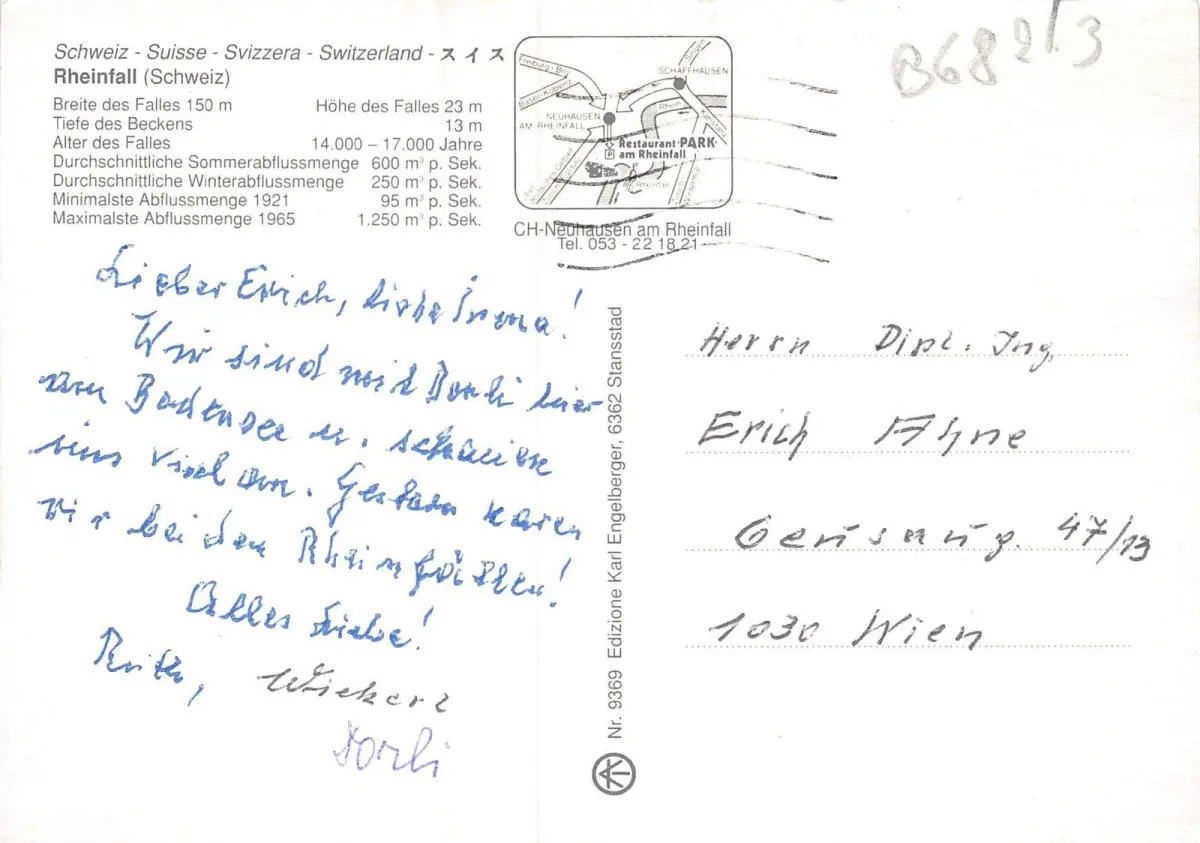 Schweiz - Suisse - Svizzera - Switzerland - スイス
Rheinfall (Schweiz)
Breite des Falles 150 m Höhe des Falles 23 m
Tiefe des Beckens 13 m
Alter des Falles 14.000 – 17.000 Jahre
Durchschnittliche Sommerabflussmenge 600 m³ p. Sek.
Durchschnittliche Winterabflussmenge 250 m³ p. Sek.
Minimalste Abflussmenge 1921 95 m³ p. Sek.
Maximalste Abflussmenge 1965 1.250 m³ p. Sek.
Freiburg i. Brg
Basel-Koblenz
Singen
SCHAFFHAUSEN
Konstanz
Rhein
NEUHAUSEN
AM RHEINFALL
P
Restaurant PARK
am Rheinfall
Rheinfall
CH-Neuhausen am Rheinfall
Tel. 053 - 22 18 21
B68 2/3
Lieber Erich, liebe Irma!
Wir sind mit Dorli hier
am Bodensee u. schauen
uns viel an. Gestern waren
wir bei den Rheinfällen!
Alles Liebe!
Ruth,
Dorli
Nr. 9369 Edizione Karl Engelberger, 6362 Stansstad
Herrn Dipl. Ing.
Erich Ahne
Geusaug. 47/13
1030 Wien